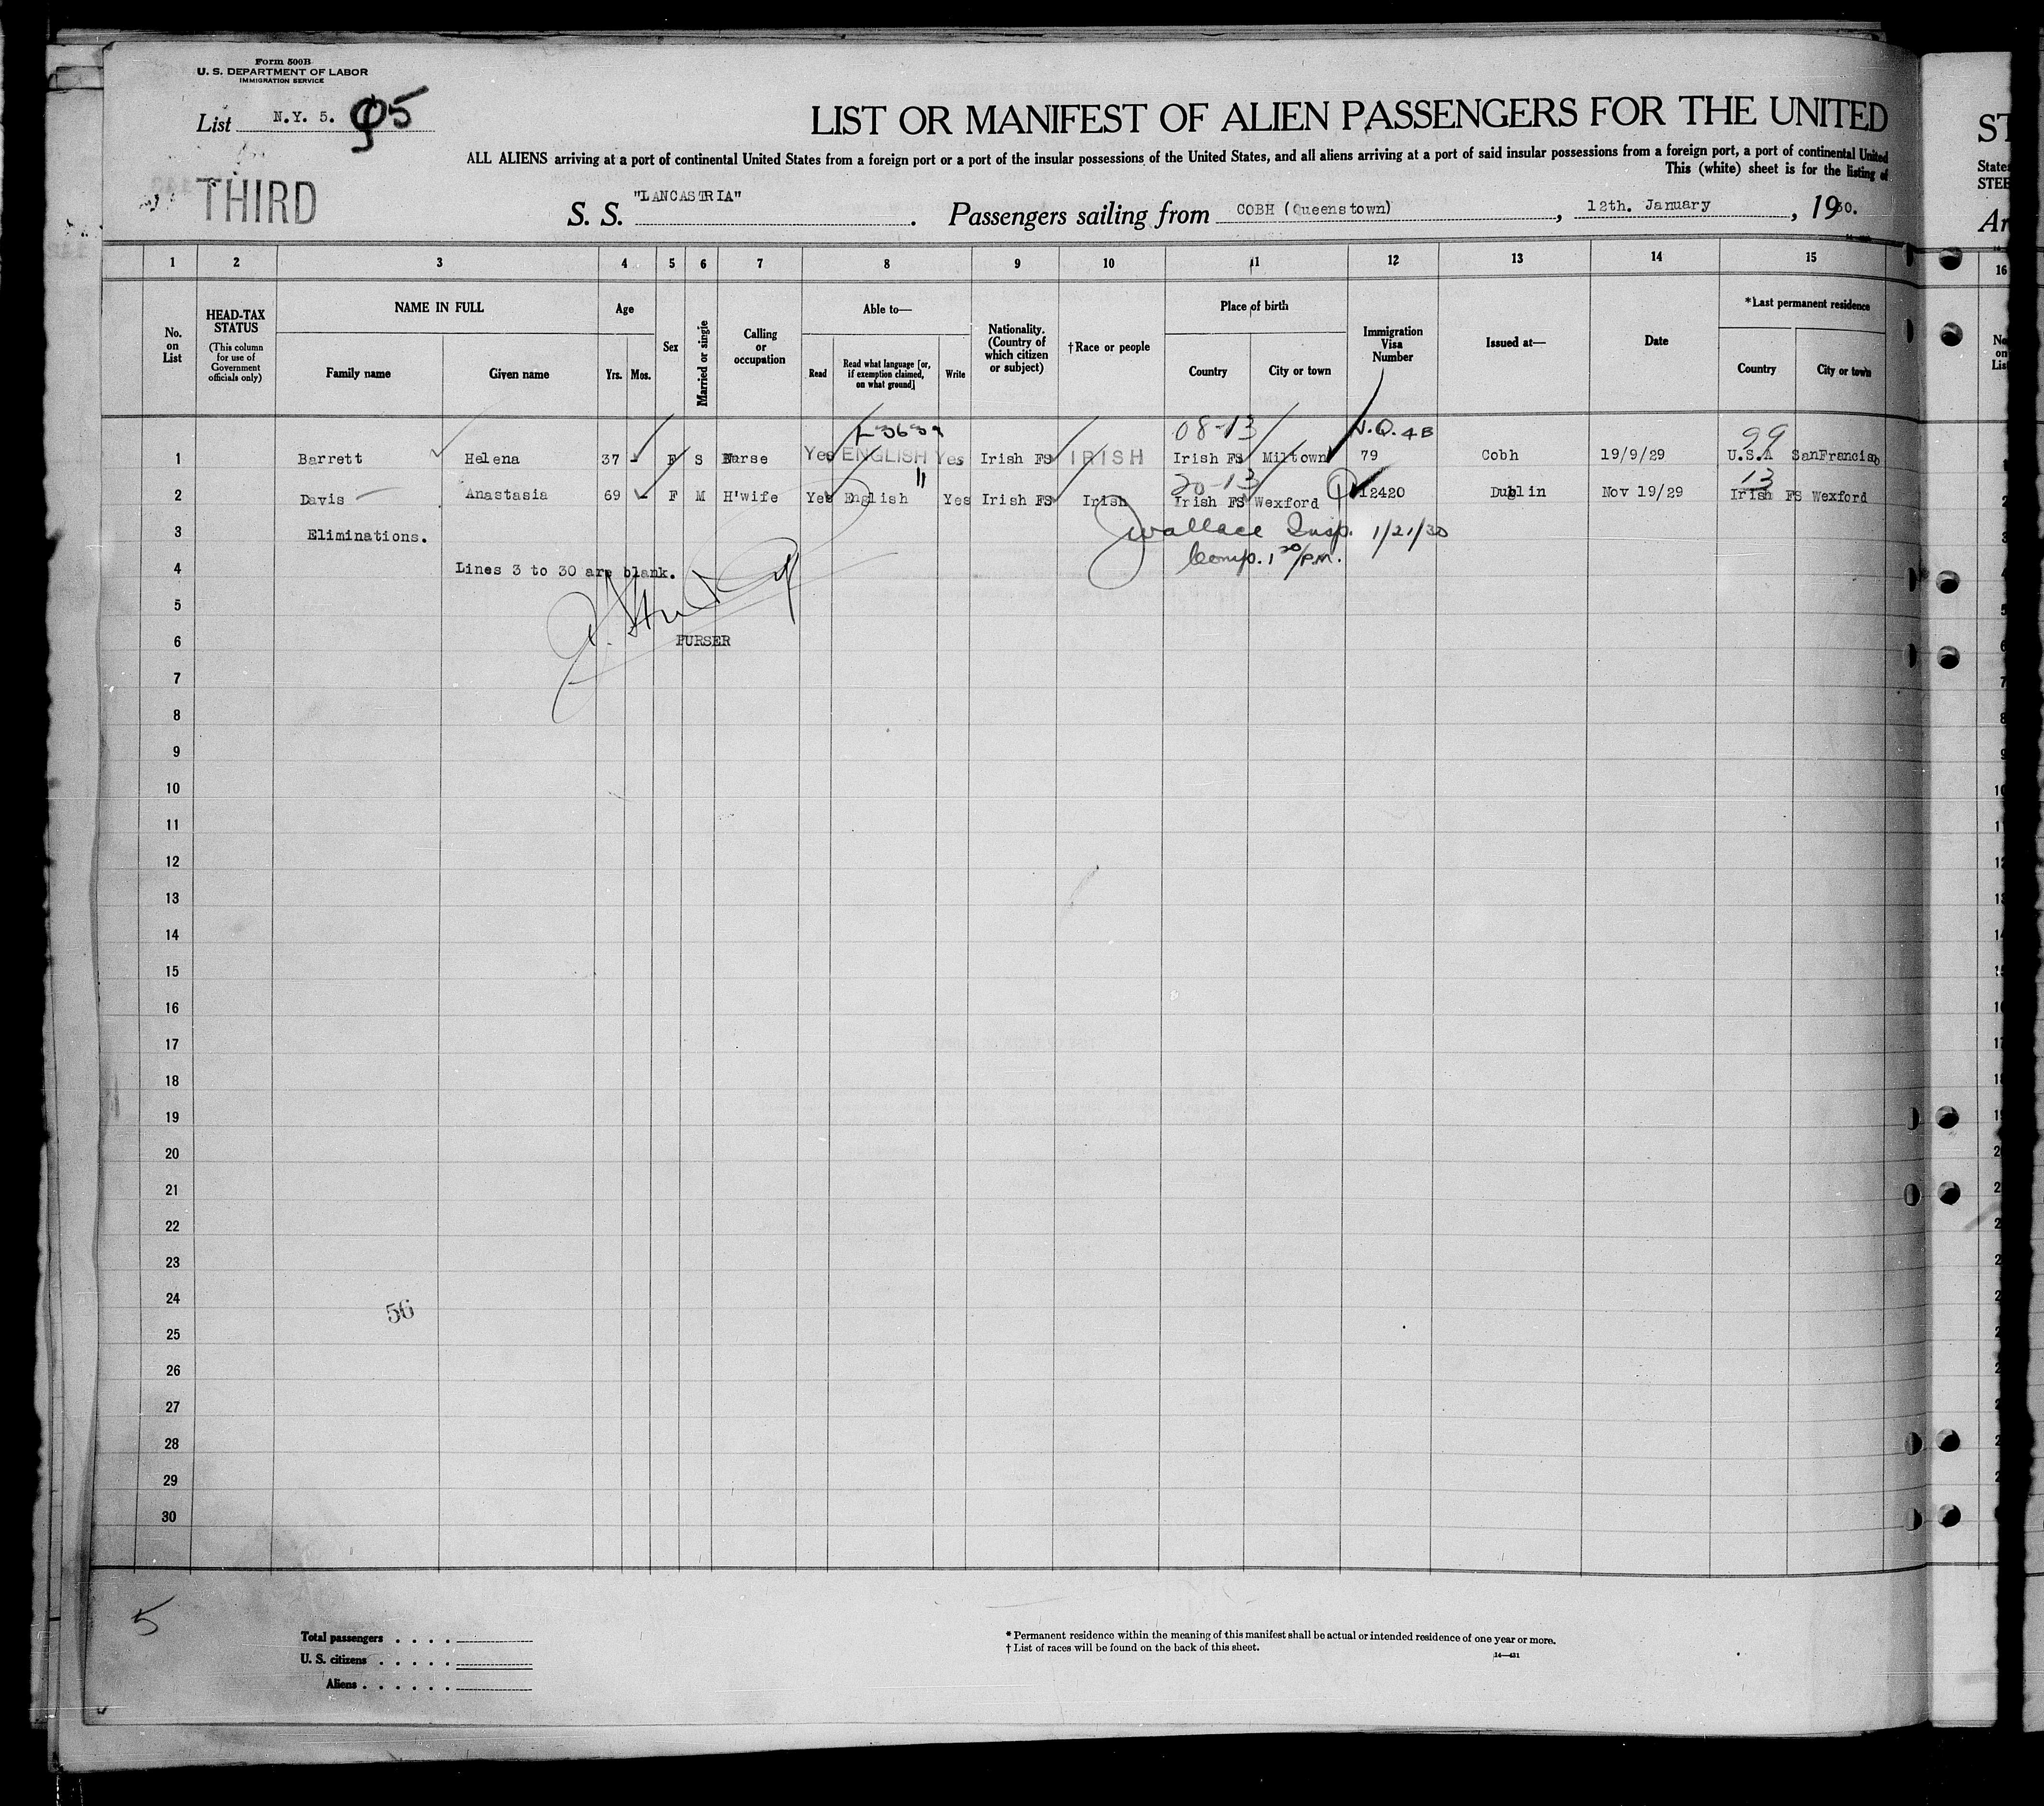 Form 500B
U. S. DEPARTMENT OF LABOR
IMMIGRATION SERVICE
List N.Y. 5. 95
THIRD
LIST OR MANIFEST OF ALIEN PASSENGERS FOR THE UNITED
ALL ALIENS arriving at a port of continental United States from a foreign port or a port of the insular possessions of the United States, and all aliens arriving at a port of said insular possessions from a foreign port, a port of continental United
This (white) sheet is for the listing of
S. S. "LANCASTRIA". Passengers sailing from COBH (Queenstown), 12th. January, 1930.
ST
States
STEE
Ar
1 2 3 4 5 6 7 8 9 10 11 12 13 14 15 16
No. on List
HEAD-TAX STATUS (This column for use of Government officials only)
NAME IN FULL
Family name Given name
Age
Yrs. Mos.
Sex
Married or single
Calling or occupation
Able to—
Read
Read what language [or, if exemption claimed, on what ground]
Write
Nationality. (Country of which citizen or subject)
†Race or people
Place of birth
Country City or town
Immigration Visa Number
Issued at—
Date
*Last permanent residence
Country City or town
08-13 4B 99
1 Barrett Helena 37 - F S Nurse Yes ENGLISH Yes Irish FS IRISH Irish FS Miltown 79 Cobh 19/9/29 U.S.A SanFrancisco
" 20-13 13
2 Davis Anastasia 69 - F M H'wife Yes English Yes Irish FS Irish Irish FS Wexford 12420 Dublin Nov 19/29 Irish FS Wexford
3 Eliminations. Jwallace Insp. 1/21/30
4 Lines 3 to 30 are blank. Comp. 1 30/P.M.
5
6 PURSER
7
8
9
10
11
12
13
14
15
16
17
18
19
20
21
22
23
24
56
25
26
27
28
29
30
5
Total passengers . . . .
U. S. citizens . . . . .
Aliens . . . . . .
* Permanent residence within the meaning of this manifest shall be actual or intended residence of one year or more.
† List of races will be found on the back of this sheet.
14—431